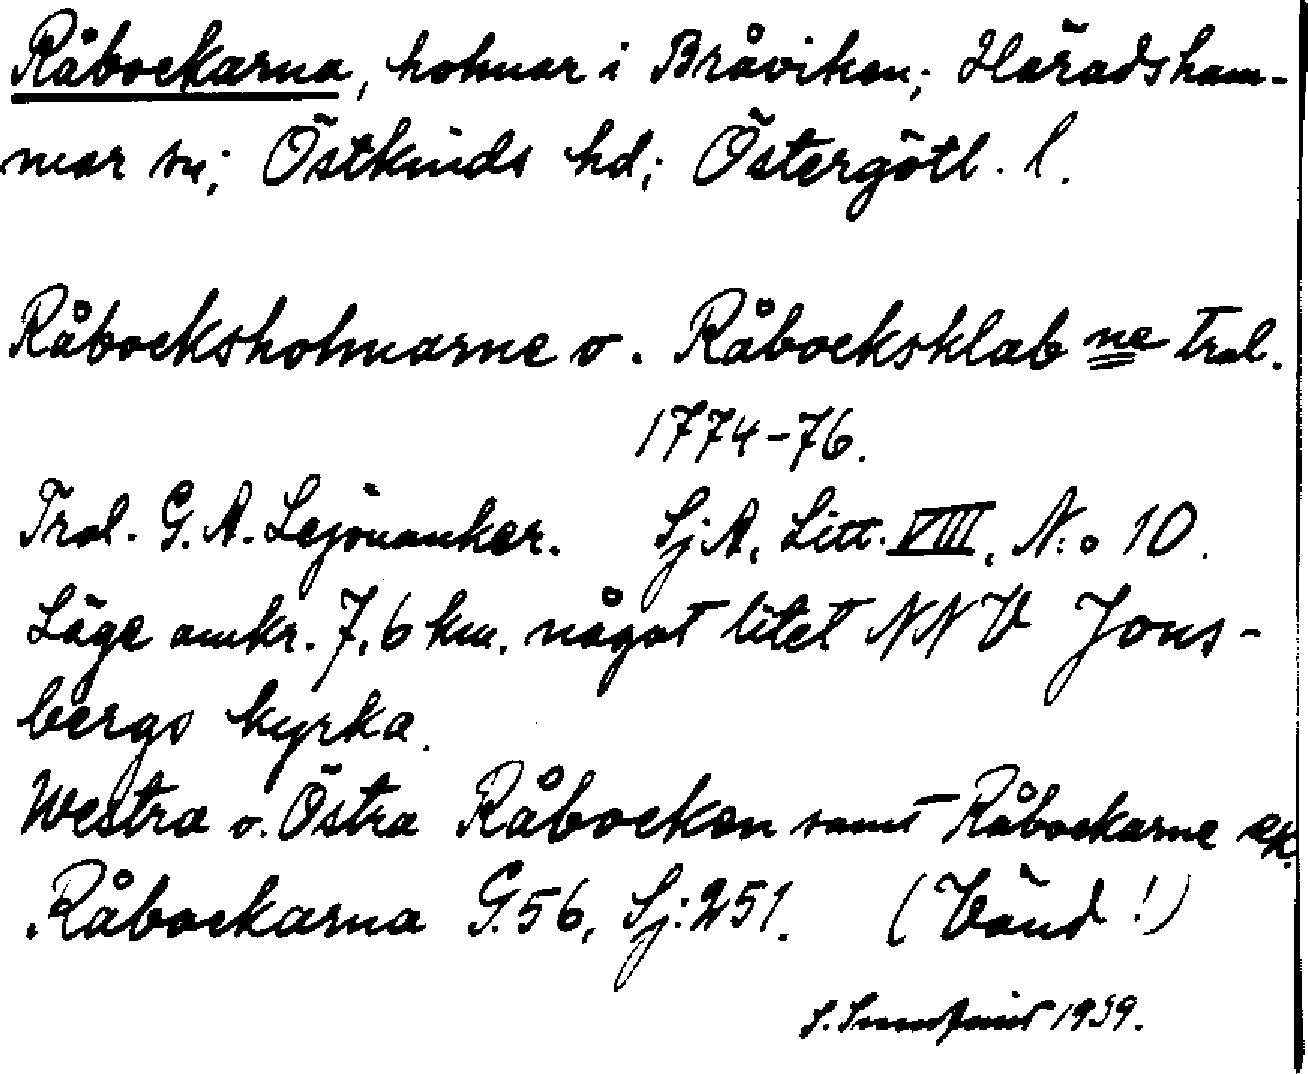 Råbockarna, holmar i Bråviken; Häradsham-
mar sn; Östkinds hd; Östergötl. l.
Råbocksholmarne o. Råbocksklabne Trol.
1774-76.
Trol. G. A. Lejonanker. Sj A, Litt. VIII, N:o 10.
Läge omkr. 7,6 km. något litet NNV Jons-
bergs kyrka.
Westra o. Östra Råbocken samt Råbockarne ek.
Råbockarna G.56, Sj:251. (Vänd!)
1939.